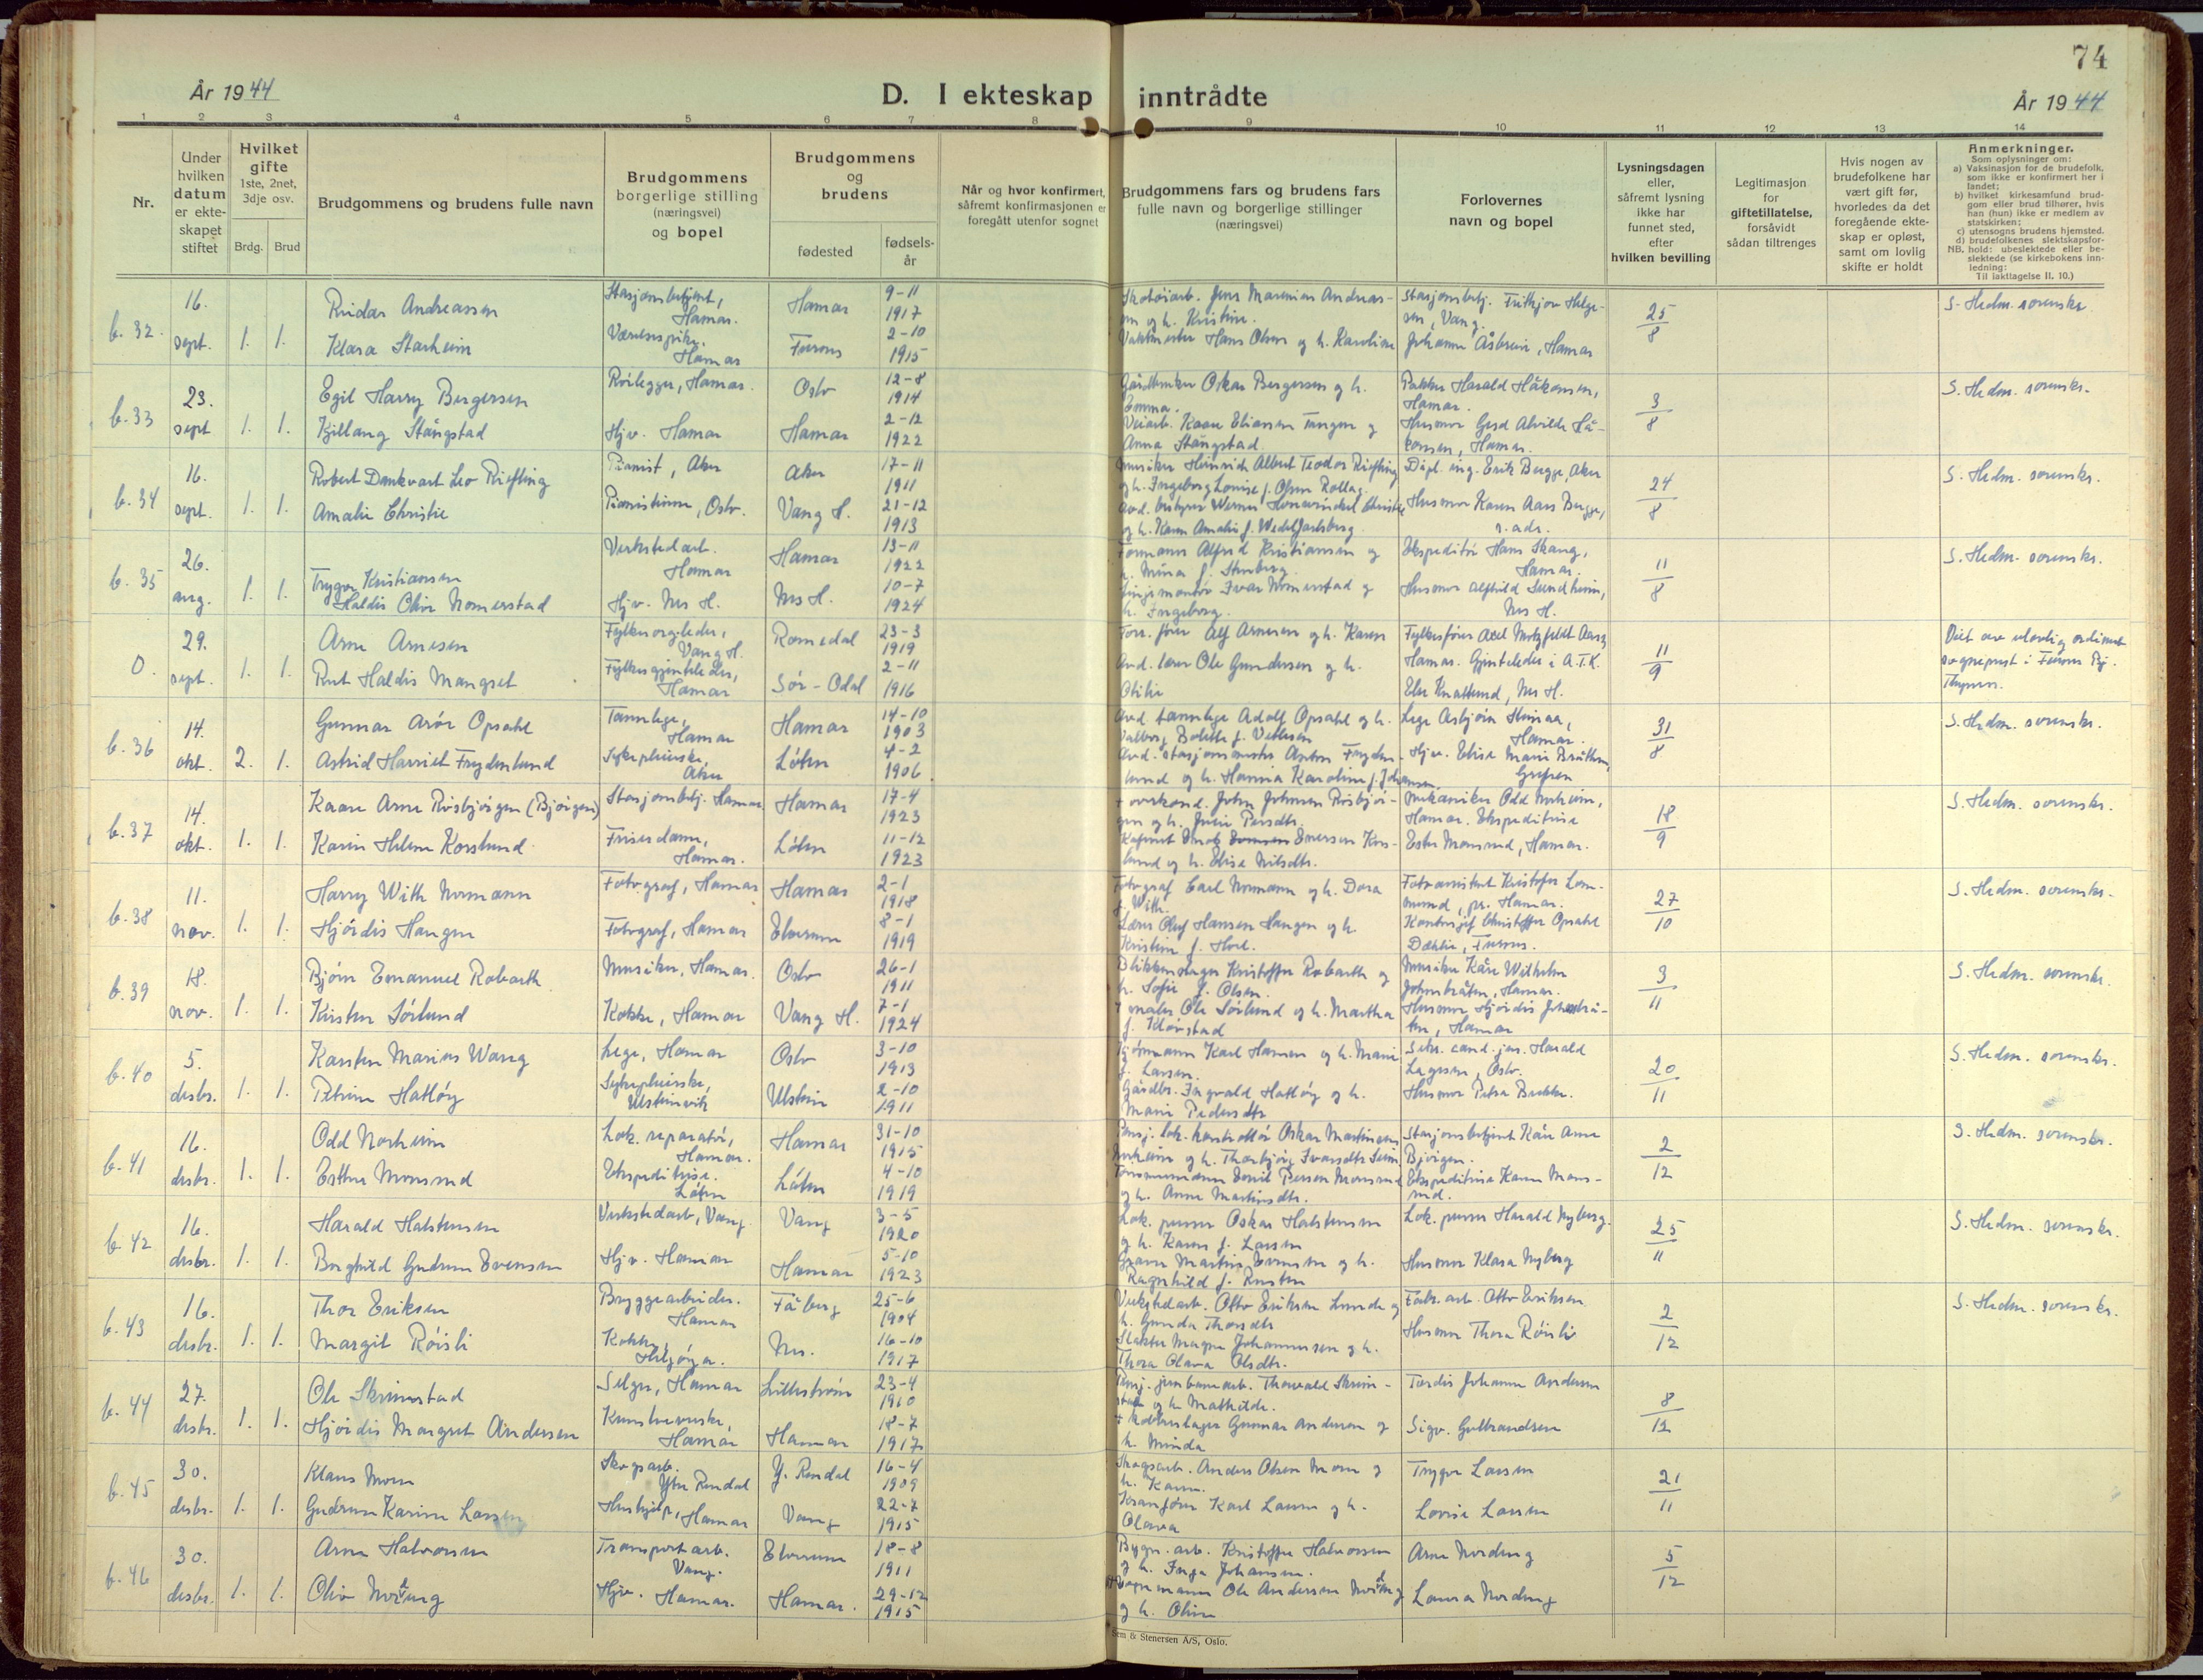 74
År 1944
D. I ekteskap inntrådte
År 1944
1 2 3 4 5 6 7 8 9 10 11 12 13 14
Nr.
Under hvilken datum er ekteskapet stiftet
Hvilket gifte
1ste, 2net, 3dje osv.
Brdg. Brud
Brudgommens og brudens fulle navn
Brudgommens borgerlige stilling (næringsvei) og bopel
Brudgommens og brudens
fødested
fødsels-år
Når og hvor konfirmert, såfremt konfirmasjonen er foregått utenfor sognet
Brudgommens fars og brudens fars fulle navn og borgerlige stillinger (næringsvei)
Forlovernes navn og bopel
Lysningsdagen eller, såfremt lysning ikke har funnet sted, efter hvilken bevilling
Legitimasjon for giftetillatelse, forsåvidt sådan tiltrenges
Hvis nogen av brudefolkene har vært gift før, hvorledes da det foregående ekteskap er opløst, samt om lovlig skifte er holdt
Anmerkninger.
Som oplysninger om:
a) Vaksinasjon for de brudefolk, som ikke er konfirmert her i landet;
b) hvilket kirkesamfund brudgom eller brud tilhører, hvis han (hun) ikke er medlem av statskirken;
c) utensogns brudens hjemsted.
d) brudefolkenes slektskapsforhold: ubeslektede eller beslektede (se kirkebokens innledning:
NB. Til iakttagelse II. 10.)
b. 32. 16. sept. 1. 1.
Reidar Andreassen Stasjonsbetjent, Hamar. Hamar 9-11 1917
Klara Starheim Hamar Furnes 2-10 1915
Skotøiarb. Jens Marenius Andreassen og h. Kristine.
Vaktmester Hans Olsen og h. Karoline
Stasjonsbetj. Frithjov Helgesen, Vang.
Johanne Åsbrein, Hamar
25/8
S. Hedm. sorenskr.
b. 33 23. sept 1. 1.
Egil Harry Bergersen Rørlegger, Hamar. Oslo 12-8 1914
Kjellaug Stângstad Hjv. Hamar Hamar 2-12 1922
Gårdbruker Oskar Bergersen og h. Emma.
Veiarb. Kaare Eliassen Tangen og Anna Stângstad.
Pakker Harald Håkonsen, Hamar.
Husmor Gerd Alvilde Håkonsen, Hamar.
3/8
S. Hedm. sorenskr.
b. 34 16. sept. 1. 1.
Robert Dankvart Leo Riefling Pianist, Aker Aker 17-11 1911
Amalie Christie Pianistinne, Oslo. Vang H. 21-12 1913
Musiker Heinrich Albert Teodor Riefling og h. Ingeborg Louise f. Olsen Rollag.
Avd. bestyrer Werner Christie og h. Karen Amalie f. Wedel Jarlsberg.
Dipl. ing. Erik Bugge, Aker
Husmor Karen Aars Bugge, s. adr.
24/8
S. Hedm. sorenskr.
b. 35 26. aug. 1. 1.
Trygve Kristiansen Verkstedarb. Hamar Hamar 13-11 1922
Haldis Oliv Nomerstad Hjv. Nes H. Nes H. 10-7 1924
Formann Alfred Kristiansen og h. Mina f. Stenberg.
Ivar Nomerstad og h. Ingeborg.
Ekspeditør Hans Skaug, Hamar.
Husmor Alfhild Sundheim, Nes H.
11/8
S. Hedm. sorenskr.
0. 29. sept. 1. 1.
Arne Arnesen Fylkesorg.leder, Vang H. Romedal 23-3 1919
Rut Haldis Mangset Fylkesgjenteleder, Hamar Sør-Odal 2-11 1916
Alf Arnesen og h. Karen
Avd. lærer Ole Gundersen og h. Otilie
Fylkesfører Axel Motzfeldt Aass, Hamar. Gjenteleder i A.T.K. Else Knatterud, Nes H.
11/9
Viet av ulovlig ordinert sogneprest i Furnes Bj. Thynes.
b. 36 14. okt. 2. 1.
Gunnar Arór Opsahl Tannlege, Hamar Hamar 14-10 1903
Astrid Harriet Frydenlund Sykepleierske, Aker Løten 4-2 1906
Avd. tannlege Adolf Opsahl og h. Valborg Bolette f. Vetlesen
Avd. stasjonsmester Anton Frydenlund og h. Hanna Karoline f. Johansen
Lege Asbjørn Hamar.
Hjv. Elise Marie Bråthen, Grefsen
31/8
S. Hedm. sorenskr.
b. 37 14. okt. 1. 1.
Kaare Arne Røsbjørgen (Bjørgen) Stasjonsbetj. Hamar Hamar 17-4 1923
Karin Helene Korslund. Frisérdame, Hamar. Løten 11-12 1923
John Johnsen Røsbjørgen og h. Julie Persdtr.
Enersen Korslund og h. Elise Nilsdtr.
Mekaniker Odd Norheim, Hamar. Ekspeditrise Ester Monsrud, Hamar.
18/9
S. Hedm. sorenskr.
b. 38 11. nov. 1. 1.
Harry With Normann Fotograf, Hamar Hamar 2-1 1918
Hjørdis Haugen Fotograf, Hamar Elverum 8-1 1919
Fotograf Carl Normann og h. Dora f. With.
Lærer Oluf Hansen Haugen og h. Kristine f. Hoel.
Kristofer Lommerud, pr. Hamar.
Kontorsjef Christoffer Opsahl Dæhlie, Furnes.
27/10
S. Hedm. sorenskr.
b. 39 18. nov. 1. 1.
Bjørn Emanuel Robarth Musiker, Hamar. Oslo 26-1 1911
Kirsten Sørlund Kokke, Hamar Vang H. 7-1 1924
Blikkenslager Kristoffer Robarth og h. Sofie f. Olsen.
† maler Ole Sørlund og h. Martha f. Klørstad
Musiker Kåre Wilhelm Johnsbråten, Hamar.
Husmor Hjørdis Johnsbråten, Hamar
3/11
S. Hedm. sorenskr.
b. 40 5. desbr. 1. 1.
Karsten Marius Wang Lege, Hamar Oslo 3-10 1913
Petrine Hatløy Sykepleierske, Ulsteinvik Ulstein 2-10 1911
Kjørmann Karl Hansen og h. Marie f. Larsen.
Gårdbr. Ingvald Hatløy og h. Marie Pedersdtr.
Sekr. cand. jur. Harald Lagesen, Oslo.
Husmor Petra Brekke.
20/11
S. Hedm. sorenskr.
b. 41 16. desbr. 1. 1.
Odd Norheim Lok. reparatør, Hamar. Hamar 31-10 1915
Esther Monsrud Ekspeditrise. Løten Løten 4-10 1919
Pensj. lok. kontrollør Oskar Martinsen Norheim og h. Thorbjørg Ivarsdtr. Seim
Tømmermann Emil Persen Monsrud og h. Anne Martinsdtr.
Stasjonsbetjent Kåre Arne Bjørgen.
Ekspeditrise Karen Monsrud.
2/12
S. Hedm. sorenskr.
b. 42 16. desbr. 1. 1.
Harald Halstensen Verkstedarb, Vang Vang 3-5 1920
Borghild Gudrun Evensen Hjv. Hamar Hamar 5-10 1923
Lok. pusser Oskar Halstensen og h. Karen f. Larsen
Graver Martin Evensen og h. Ragnhild f. Rusten
Lok. pusser Harald Nyberg.
Husmor Klara Nyberg
25/11
S. Hedm. sorenskr.
b. 43 16. desbr. 1. 1.
Thor Eriksen Bryggearbeider. Hamar Fåberg 25-6 1904
Margit Røisli Kokke, Helgøya. Nes. 16-10 1917
Verkstedarb. Otto Eriksen Lunde og h. Gunda Thorsdtr.
Slakter Magne Johannessen og h. Thora Olava Olsdtr.
Fabr. arb. Otto Eriksen
Husmor Thora Røisli
2/12
S. Hedm. sorenskr.
b. 44 27. desbr. 1. 1.
Ole Skrimstad Selger, Hamar Lillestrøm 23-4 1910
Hjørdis Margret Andersen Kunstveverske, Hamar Hamar 18-7 1917
Pensj. jernbanearb. Thorvald Skrimstad og h. Mathilde.
† kobberslager Gunnar Andersen og h. Minda
Tordis Johanne Andersen
Sigv. Gulbrandsen
8/12
b. 45 30. desbr. 1. 1.
Klaus Moen Skogsarb. Ytre Rendal Y. Rendal 16-4 1909
Gudrun Karine Larsen Hushjelp, Hamar Vang 22-7 1915
Skogsarb. Anders Olsen Moen og h. Karen.
Kranfører Karl Larsen og h. Olava
Trygve Larsen
Lovise Larsen
21/11
b. 46 30. desbr. 1. 1.
Arne Halvorsen Transportarb. Vang. Elverum 18-8 1911
Oliv Nordeng Hjv. Hamar. Hamar. 29-12 1915
Bygn. arb. Kristoffer Halvorsen og h. Inga Johansen.
Vognmann Ole Andersen Nordeng og h. Oline
Arne Nordeng
Laura Nordeng
5/12
Sem & Stenersen A/S, Oslo.